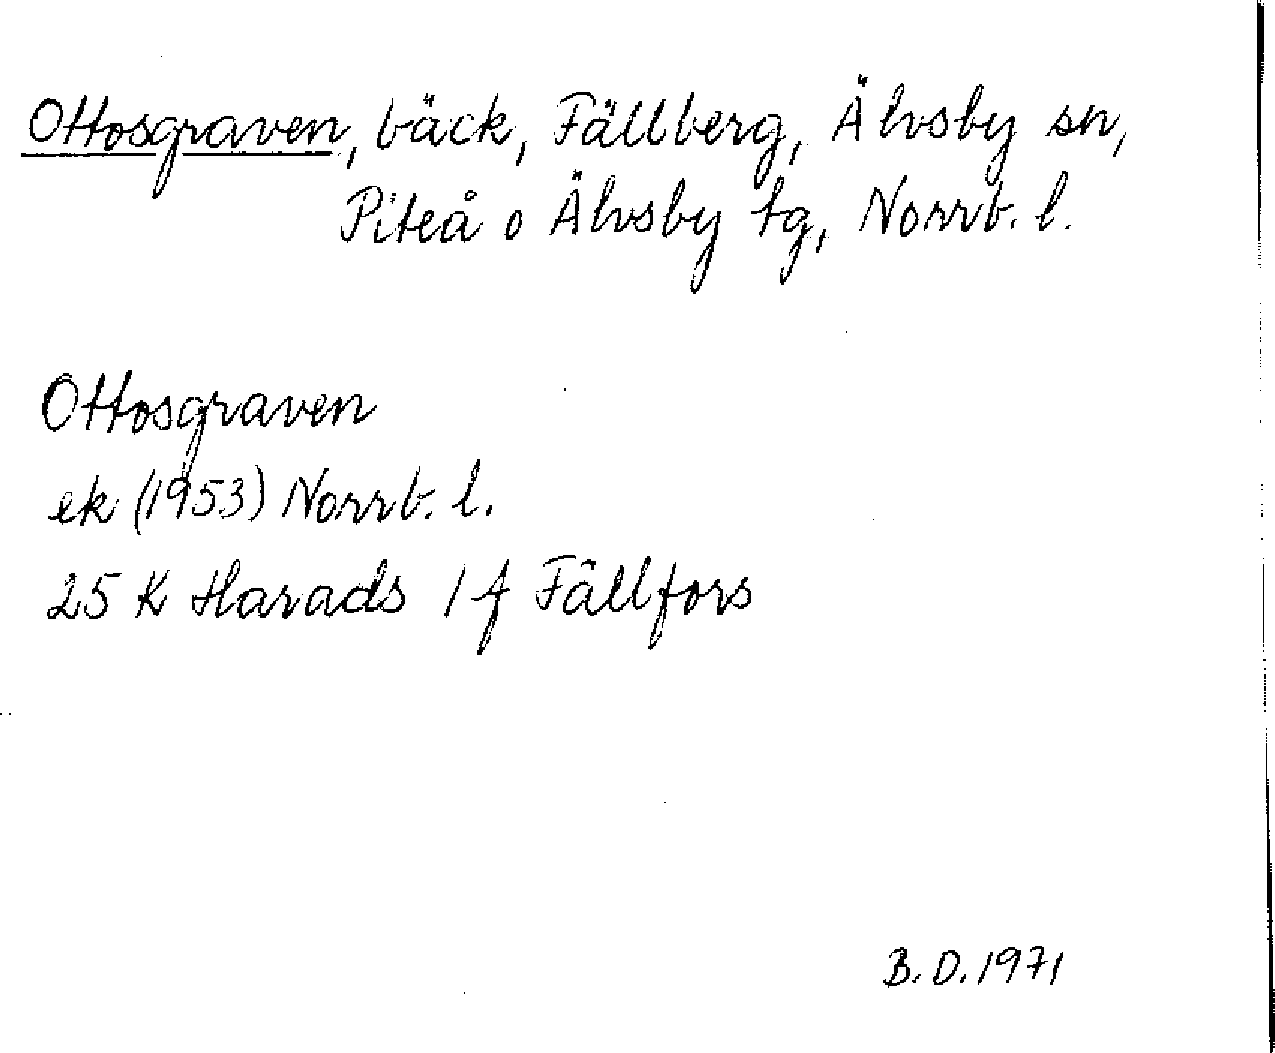 Ottosgraven, bäck, Fällberg, Älvsby sn,
Piteå o Älvsby tg, Norrb. l.
Ottosgraven
ek (1953) Norrb. l.
25 K Harads 1 f Fällfors
B. D. 1971